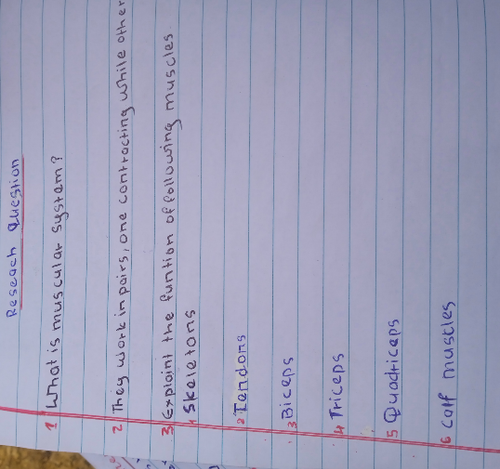 Reseach Question
1 What is muscular system?
2 They work in pairs, one contracting while other
3 Explaint the funtion of following muscles
1 Skeletons
2 Tendons
3 Biceps
4 Triceps
5 Quadriceps
6 Calf muscles